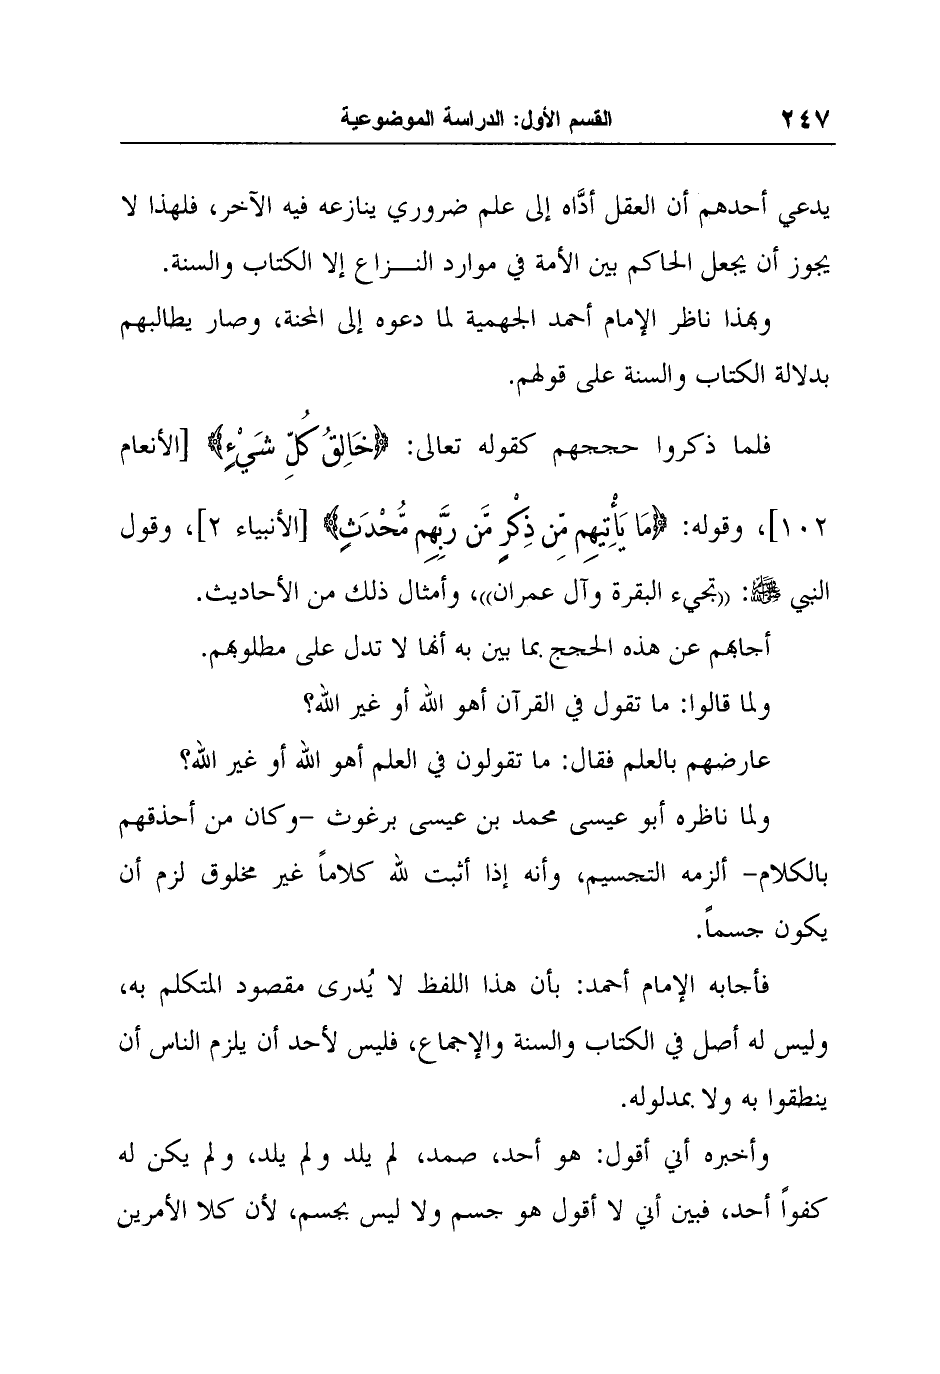 ٢٤٧ القسم الأول: الدراسة الموضوعية
يدعي أحدهم أن العقل أدَّاه إلى علم ضروري ينازعه فيه الآخر، فلهذا لا
يجوز أن يجعل الحاكم بين الأمة في موارد النــزاع إلا الكتاب والسنة.
وبهذا ناظر الإمام أحمد الجهمية لما دعوه إلى المحنة، وصار يطالبهم
بدلالة الكتاب والسنة على قولهم.
فلما ذكروا حججهم كقوله تعالى: ﴿خَالِقُ كُلِّ شَيْءٍ﴾ [الأنعام
١٠٢]، وقوله: ﴿مَا يَأْتِيهِم مِّن ذِكْرٍ مَّن رَّبِّهِم مُّحْدَثٍ﴾ [الأنبياء ٢]، وقول
النبي ﷺ: ((تجيء البقرة وآل عمران))، وأمثال ذلك من الأحاديث.
أجابهم عن هذه الحجج بما بين به أنها لا تدل على مطلوبهم.
ولما قالوا: ما تقول في القرآن أهو الله أو غير الله؟
عارضهم بالعلم فقال: ما تقولون في العلم أهو الله أو غير الله؟
ولما ناظره أبو عيسى محمد بن عيسى برغوث -وكان من أحذقهم
بالكلام- ألزمه التجسيم، وأنه إذا أثبت لله كلاماً غير مخلوق لزم أن
يكون جسماً.
فأجابه الإمام أحمد: بأن هذا اللفظ لا يُدرى مقصود المتكلم به،
وليس له أصل في الكتاب والسنة والإجماع، فليس لأحد أن يلزم الناس أن
ينطقوا به ولا بمدلوله.
وأخبره أني أقول: هو أحد، صمد، لم يلد ولم يلد، ولم يكن له
كفواً أحد، فبين أني لا أقول هو جسم ولا ليس بجسم، لأن كلا الأمرين